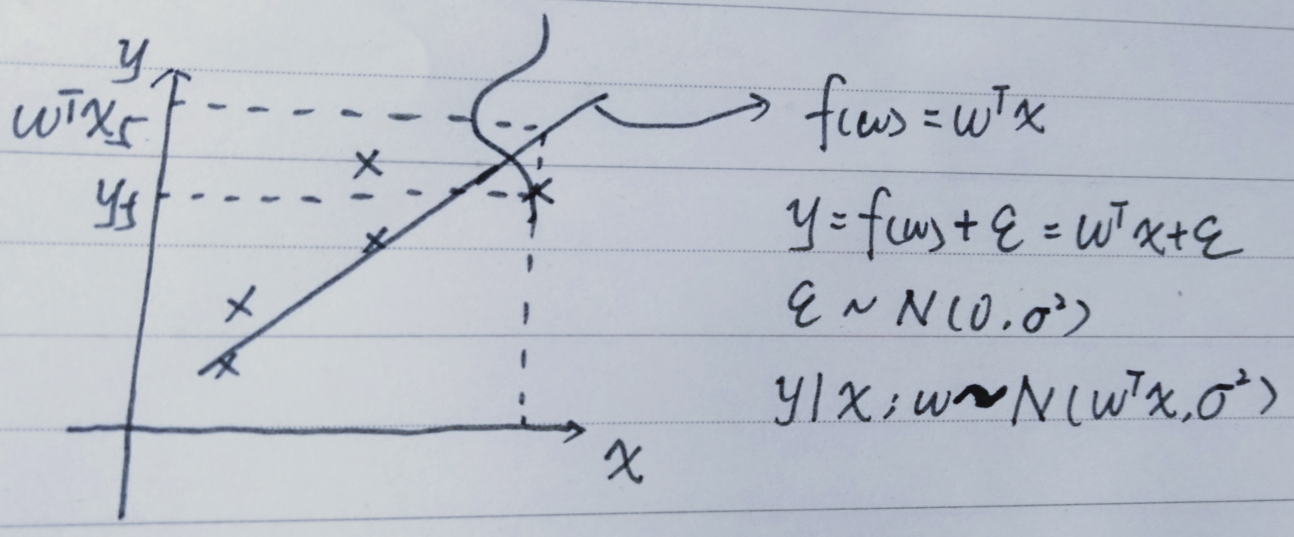 y
wᵀx₅
y₅
x
f(w) = wᵀx
y = f(w) + ε = wᵀx + ε
ε ~ N(0, σ²)
y | x; w ~ N(wᵀx, σ²)